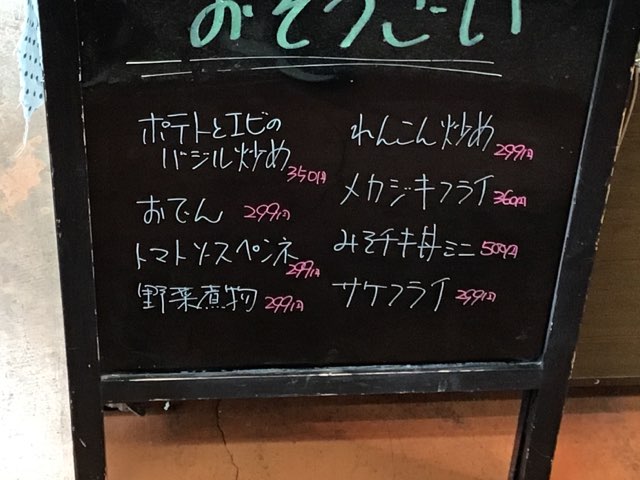 おそうざい
ポテトとエビの
バジル炒め 350円
おでん 299円
トマトソースペンネ
299円
野菜煮物 299円
れんこん炒め
299円
メカジキフライ 360円
みそチキ丼ミニ 509円
サケフライ 299円